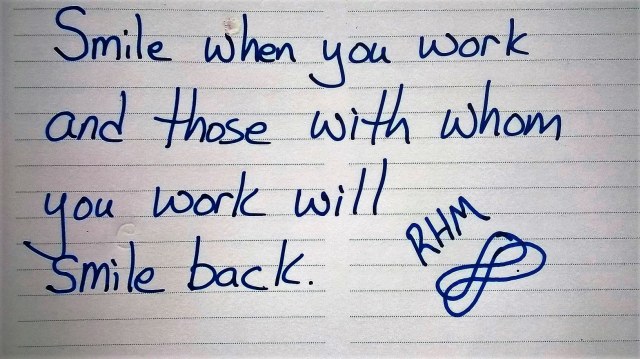 Smile when you work
and those with whom
you work will
Smile back.
RHM